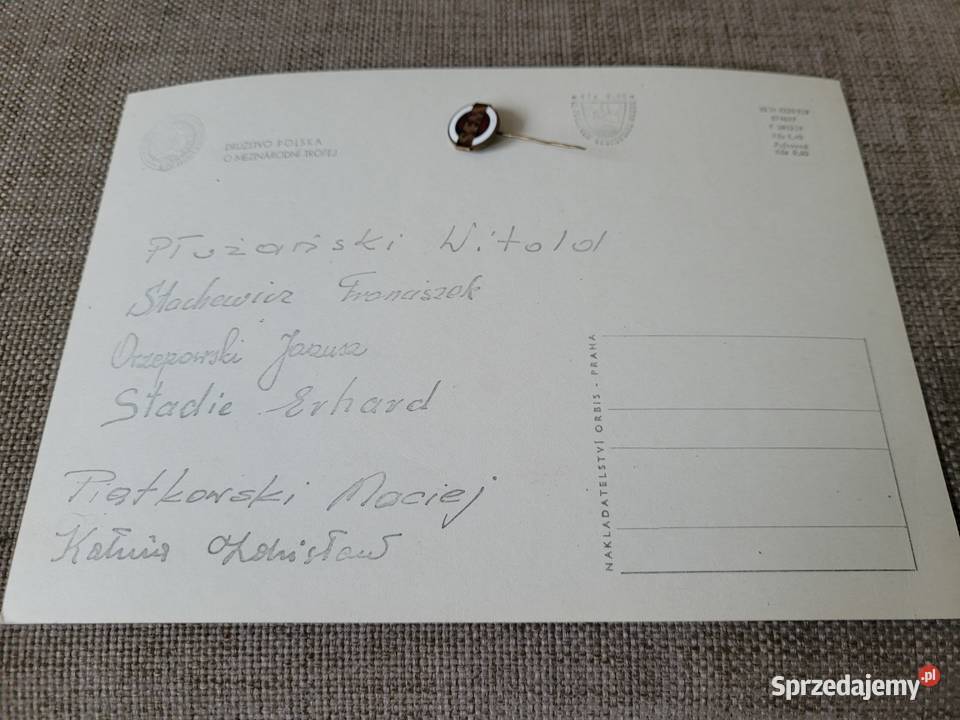 DRUŽSTVO POLSKA
O MEZINÁRODNÍ TROFEJ
Płużański Witold
Stachewicz Franciszek
Orzepowski Janusz
Stadie Erhard
Piątkowski Maciej
Kałuża Zdzisław
NAKLADATELSTVÍ ORBIS - PRAHA
Sprzedajemy.pl